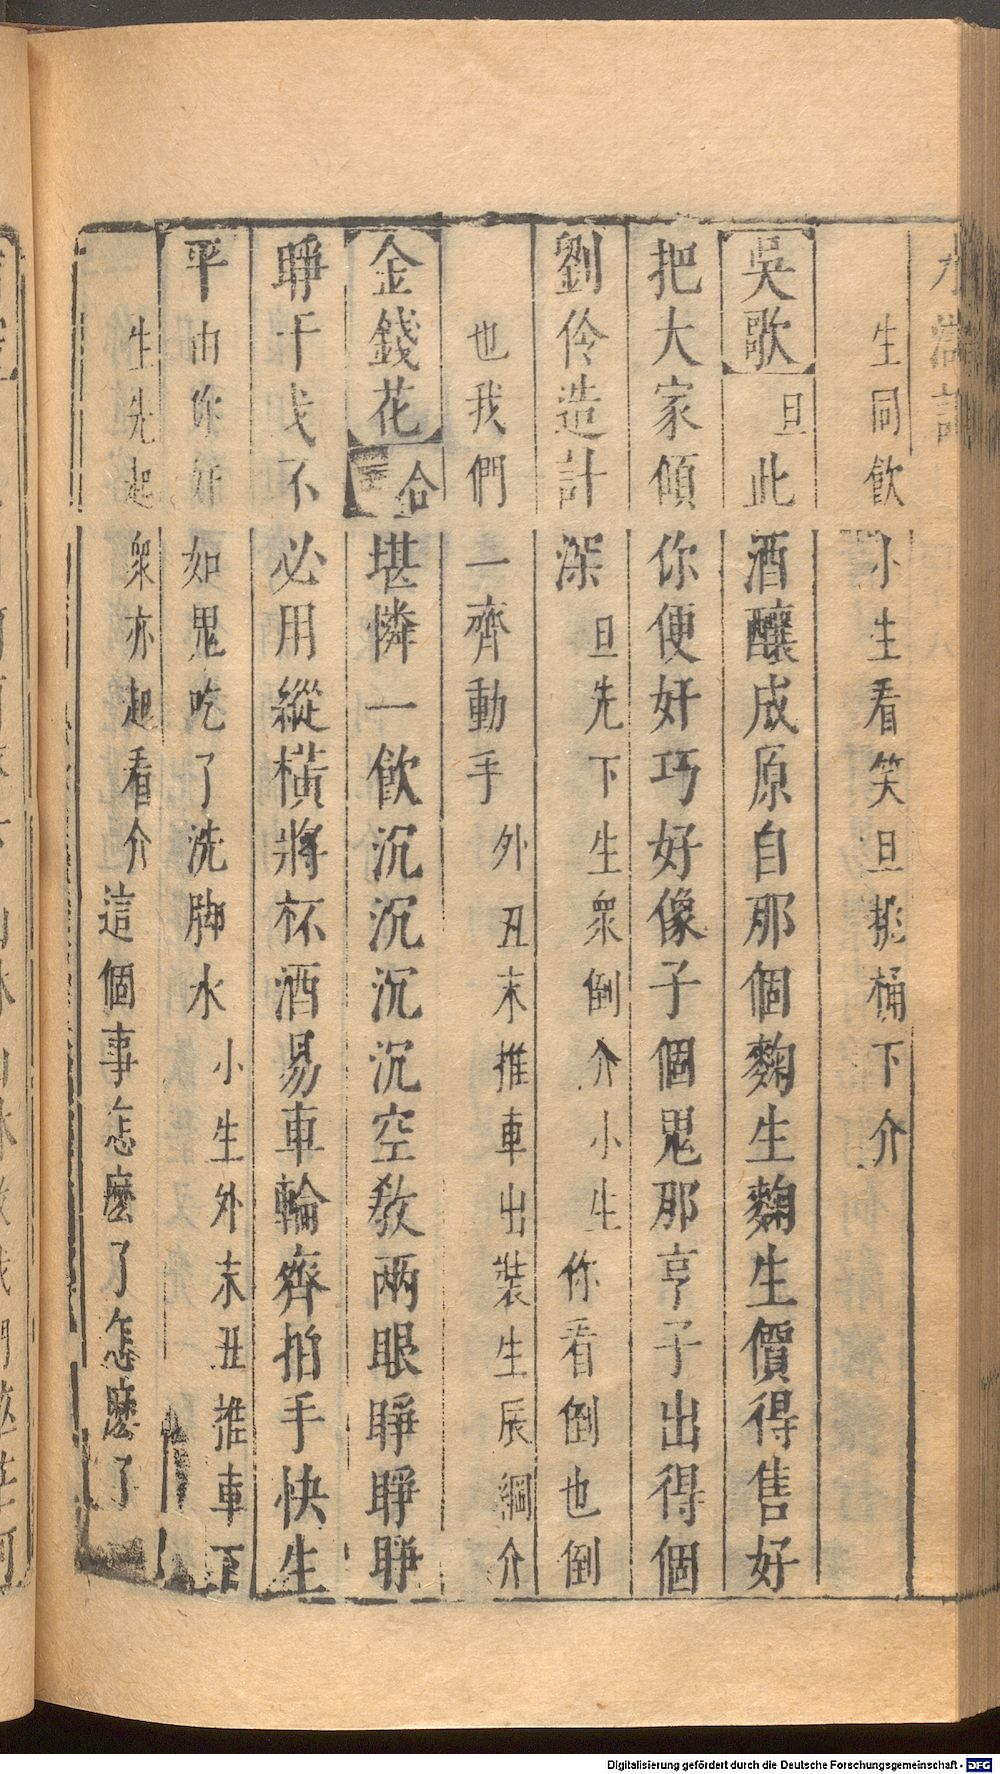 水滸記
生同飲 小生看笑旦挑桶下介
吳歌 旦 此酒釀成原自那個麴生麴生價得售好
把大家傾你便奸巧好像子個鬼那亨子出得個
劉伶造計深 旦先下生衆倒介小生 你看倒也倒
也我們一齊動手 外丑末推車出裝生辰綱介
金錢花 合 堪憐一飲沉沉沉沉空教兩眼睜睜睜
睜干戈不必用縱橫將杯酒易車輪齊拍手快生
平由你奸如鬼吃了洗脚水 小生外末丑推車下
生先起衆亦起看介 這個事怎麼了怎麼了
Digitalisierung gefördert durch die Deutsche Forschungsgemeinschaft - DFG